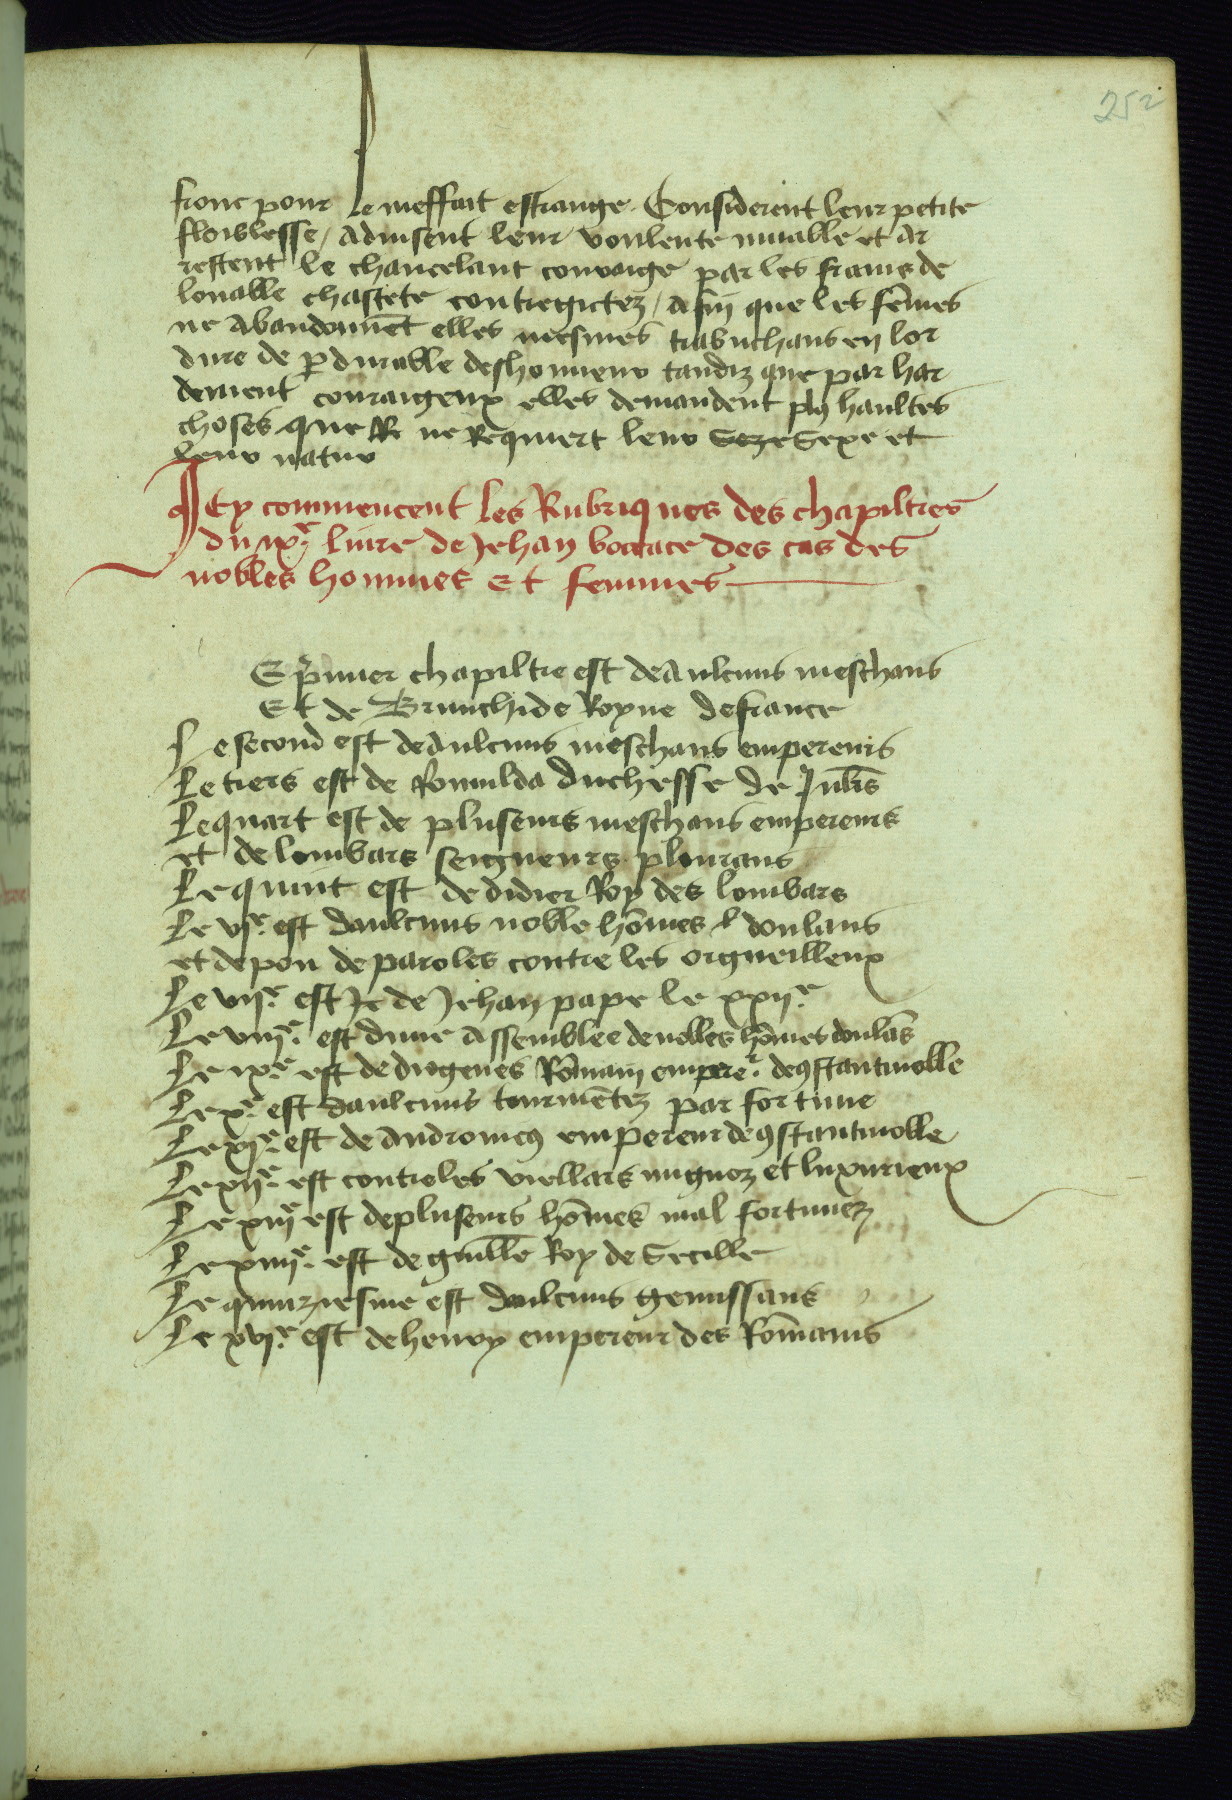 252
fronc pour le meffait estrange. Considerent leur petite
floiblesse / advisent leur voulente muable et ar
restent le chancelant couraige par les frains de
louable chastete contregictez / Afin que les fēmes
ne abandonnēt elles mesmes trabuchans en lor
dure de ꝑdurable deshonneur tandiz que par har
dement couraigeux elles demandent plꝯ haultes
choses que ne Requiert leur Sexe et
leur natur
Cy commencent les Rubriques des chapiltres
du ixᵉ. livre de Jehan boccace des cas des
nobles hommes Et femmes
E p̄mier chapiltre est de Aulcuns meschans
Et de Brunchide Royne de france
Le second est de Aulcuns meschans empereurs
Le tiers est de Romulda duchesse de
Le quart est de pluseurs meschans empereurs
et de lombars seigneurs plourans
Le quint est de didier Roy des lombars
Le viᵉ. est daulcuns noble hōmes doulans
et de pou de paroles contre les orgueilleux
Le viiᵉ. est de Jehan pape le xxiiᵉ
Le viiiᵉ. est dune Assemblee de nobles hōmes doulās
Le ixᵉ. est de diogenes Rōmain empereʳ. de ꝯstantinoble
Le xᵉ. est daulcuns tourmētez par fortune
Le xiᵉ. est de andronicꝯ empereur de ꝯstantinoble
Le xiiᵉ. est contre les viellars mignoz et luxurieux
Le xiiiᵉ est de pluseurs hōmes mal fortunez
Le xiiiiᵉ. est de guill̄e Roy de Secille
Le quinziesme est daulcuns gemissans
Le xviᵉ. est de henry empereur des Rōmains